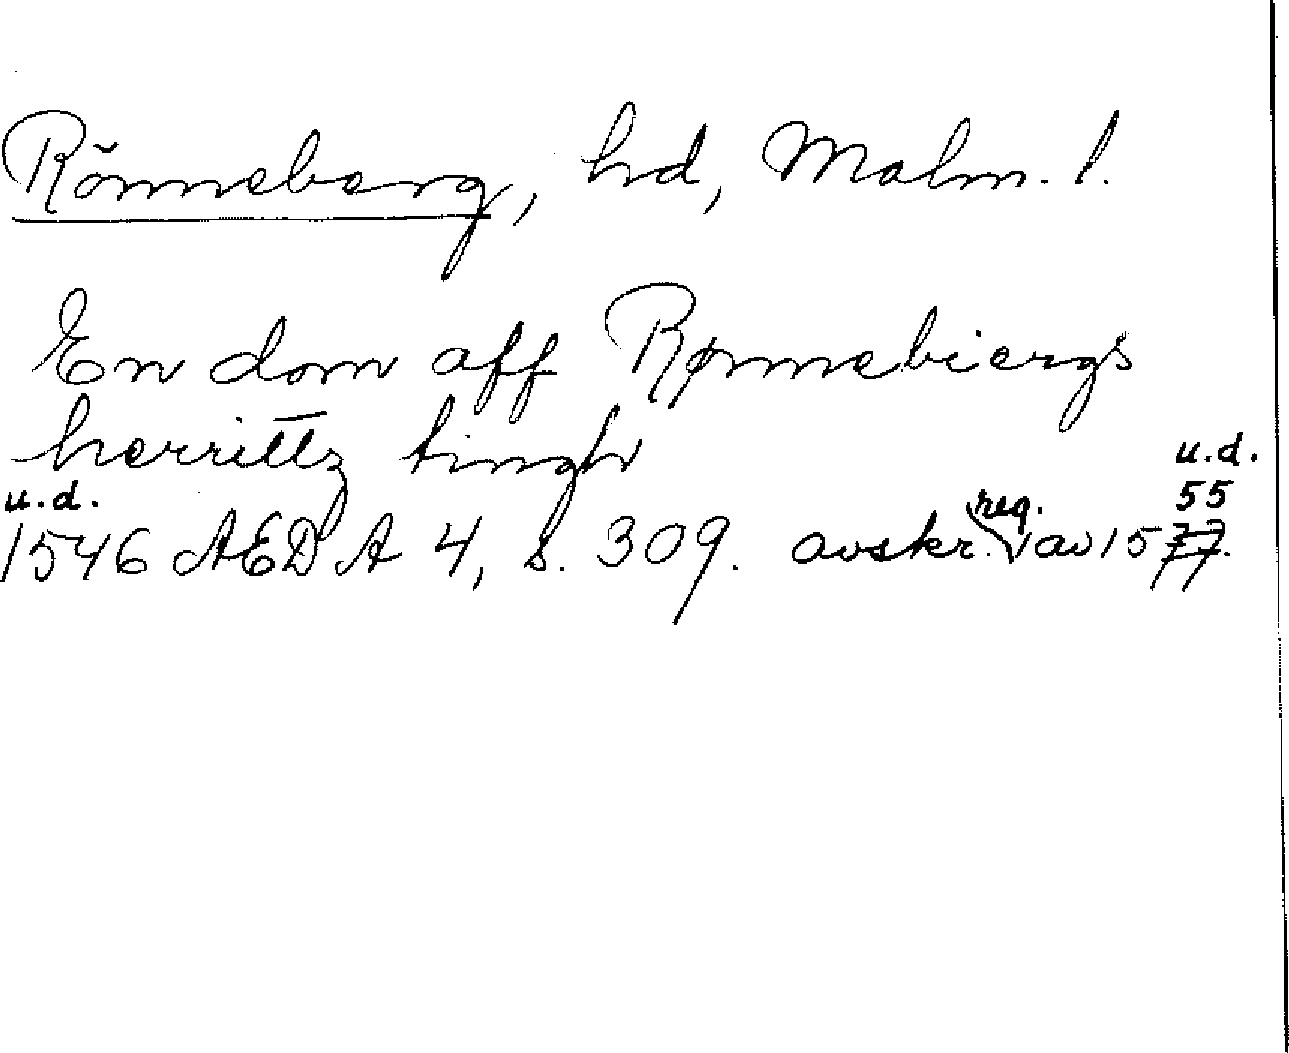 Rönneberg, hd, Malm. l.
En dom aff Rønnebiergs
herrittz tingh
u.d.
u.d.
55
1546 AEDA 4, s. 309. avskr. reg. av 1577.